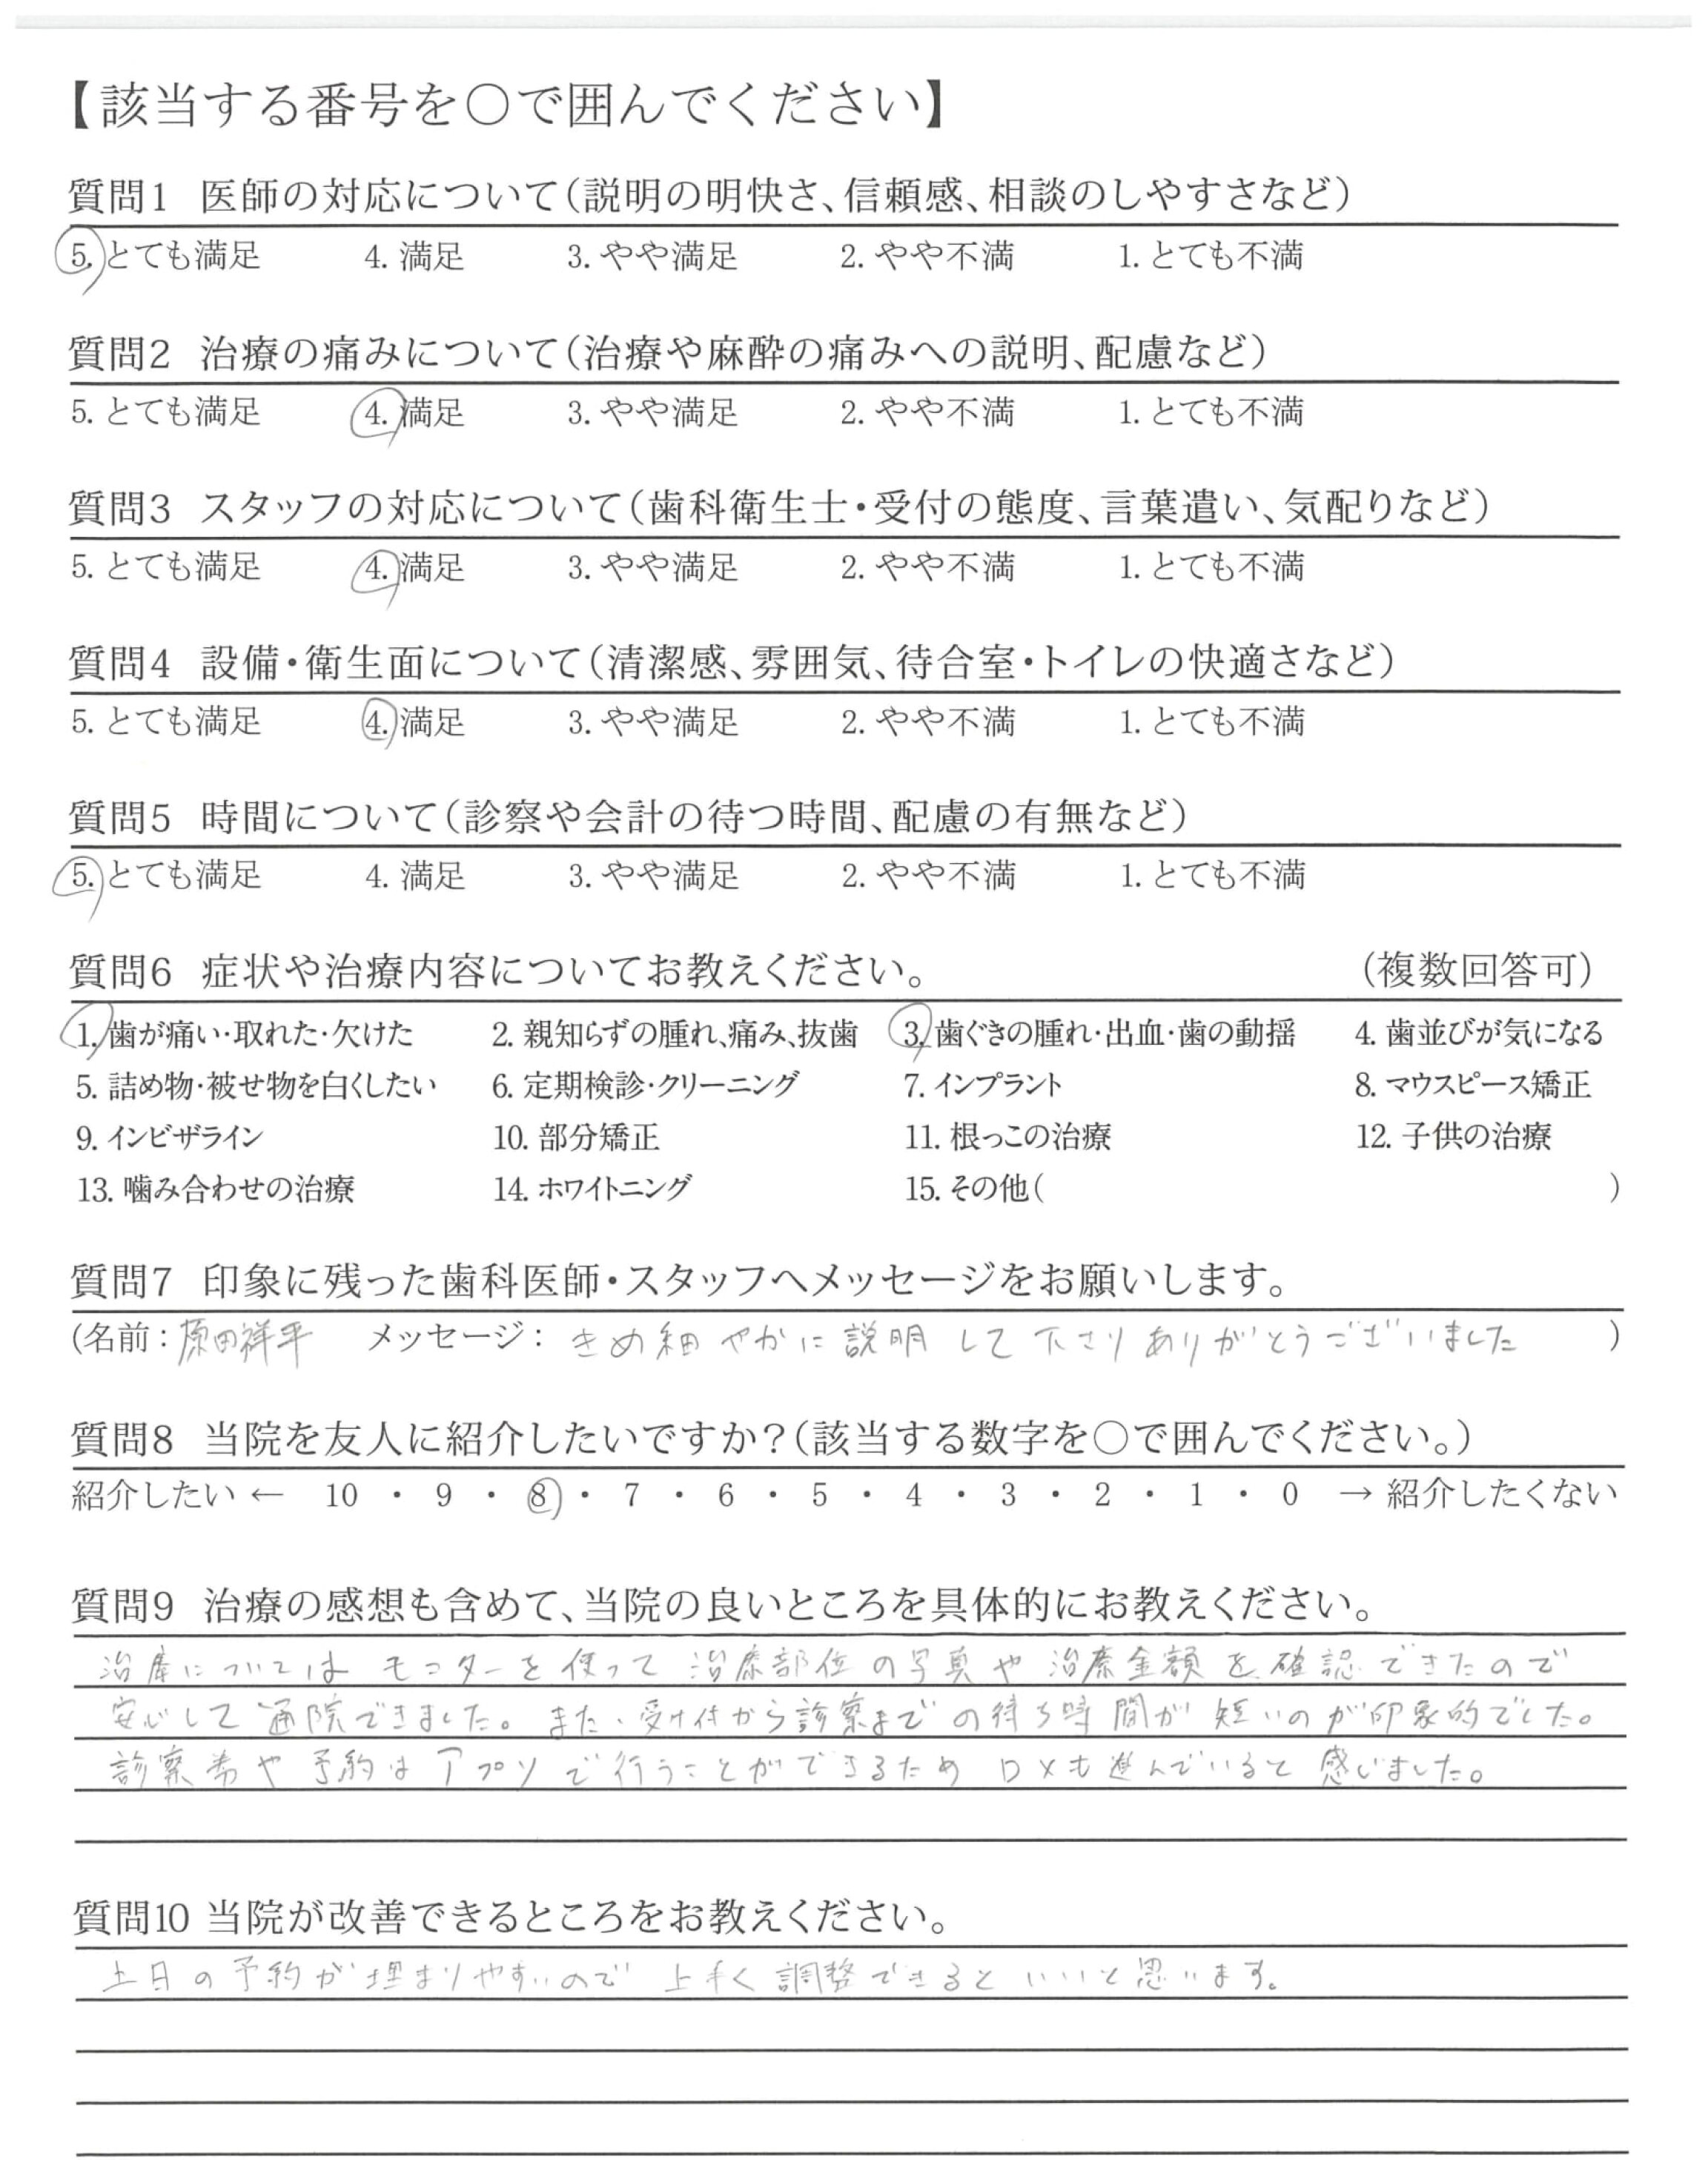 【該当する番号を○で囲んでください】
質問1 医師の対応について(説明の明快さ、信頼感、相談のしやすさなど)
5. とても満足 4. 満足 3. やや満足 2. やや不満 1. とても不満
質問2 治療の痛みについて(治療や麻酔の痛みへの説明、配慮など)
5. とても満足 4. 満足 3. やや満足 2. やや不満 1. とても不満
質問3 スタッフの対応について(歯科衛生士・受付の態度、言葉遣い、気配りなど)
5. とても満足 4. 満足 3. やや満足 2. やや不満 1. とても不満
質問4 設備・衛生面について(清潔感、雰囲気、待合室・トイレの快適さなど)
5. とても満足 4. 満足 3. やや満足 2. やや不満 1. とても不満
質問5 時間について(診察や会計の待つ時間、配慮の有無など)
5. とても満足 4. 満足 3. やや満足 2. やや不満 1. とても不満
質問6 症状や治療内容についてお教えください。 (複数回答可)
1. 歯が痛い・取れた・欠けた 2. 親知らずの腫れ、痛み、抜歯 3. 歯ぐきの腫れ・出血・歯の動揺 4. 歯並びが気になる
5. 詰め物・被せ物を白くしたい 6. 定期検診・クリーニング 7. インプラント 8. マウスピース矯正
9. インビザライン 10. 部分矯正 11. 根っこの治療 12. 子供の治療
13. 噛み合わせの治療 14. ホワイトニング 15. その他( )
質問7 印象に残った歯科医師・スタッフへメッセージをお願いします。
(名前：原田祥平 メッセージ：きめ細やかに説明して下さりありがとうございました )
質問8 当院を友人に紹介したいですか？(該当する数字を○で囲んでください。)
紹介したい ← 10 ・ 9 ・ 8 ・ 7 ・ 6 ・ 5 ・ 4 ・ 3 ・ 2 ・ 1 ・ 0 → 紹介したくない
質問9 治療の感想も含めて、当院の良いところを具体的にお教えください。
治療についてはモニターを使って治療部位の写真や治療金額を確認できたので
安心して通院できました。また、受け付から診察までの待ち時間が短いのが印象的でした。
診察券や予約はアプリで行うことができるためDXも進んでいると感じました。
質問10 当院が改善できるところをお教えください。
土日の予約が埋まりやすいので上手く調整できるといいと思います。